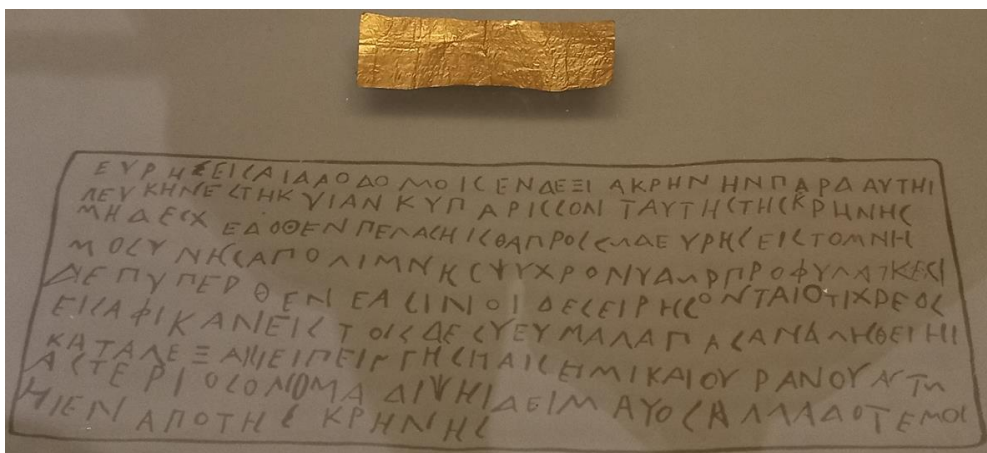 ΕΥΡΗΣΕΙϹΑΙΔΑΟΔΟΜΟΙϹΕΝΔΕΞΙΑΚΡΗΝΗΝΠΑΡΔΑΥΤΗΙ
ΛΕΥΚΗΝΕϹΤΗΚΥΙΑΝΚΥΠΑΡΙϹϹΟΝΤΑΥΤΗϹΤΗϹΚΡΗΝΗϹ
ΜΗΔΕϹΧΕΔΟΘΕΝΠΕΛΑϹΗΙϹΘΑΠΡΟϹϹΩΔΕΥΡΗϹΕΙϹΤΟΜΝΗ
ΜΟϹΥΝΗϹΑΠΟΛΙΜΝΗϹΨΥΧΡΟΝΥΔΩΡΠΡΟΦΥΛΑΤΚΕϹΙ
ΔΕΠΥΠΕΡΘΕΝΕΑϹΙΝΟΙΔΕϹΕΙΡΗϹΟΝΤΑΙΟΤΙΧΡΕΟϹ
ΕΙϹΑΦΙΚΑΝΕΙϹΤΟΙϹΔΕϹΥΕΥΜΑΛΑΠΑϹΑΝΑΛΗΘΕΙΗΙ
ΚΑΤΑΛΕΞΑΙΕΙΠΕΙΝΓΗϹΠΑΙϹΕΙΜΙΚΑΙΟΥΡΑΝΟΥΑϹΤ
ΑϹΤΕΡΙΟϹΟΝΟΜΑΔΙΨΗΙΔΕΙΜΑΥΟϹΑΛΛΑΔΟΤΕΜΟΙ
ΠΙΕΝΑΠΟΤΗϹΚΡΗΝΗϹ